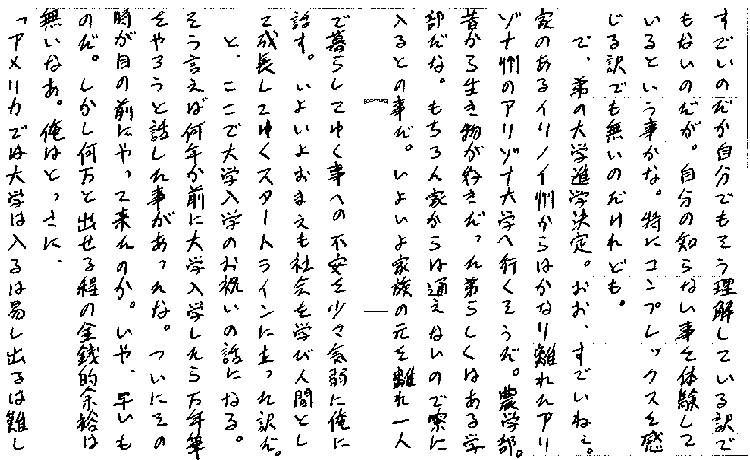 すごいのだが自分でもそう理解している訳で
もないのだが。自分の知らない事を体験して
いるという事かな。特にコンプレックスを感
じる訳でも無いのだけれども。
で、弟の大学進学決定。おお、すごいねぇ。
家のあるイリノイ州からはかなり離れたアリ
ゾナ州のアリゾナ大学へ行くそうだ。農学部。
昔から生き物が好きだった弟らしくはある学
部だな。もちろん家からは通えないので寮に
入るとの事だ。いよいよ家族の元を離れ一人
で暮らしてゆく事への不安を少々気弱に俺に
話す。いよいよおまえも社会を学び人間とし
て成長してゆくスタートラインに立った訳だ。
と、ここで大学入学のお祝いの話になる。
そう言えば何年か前に大学入学したら万年筆
をやろうと話した事があったな。ついにその
時が目の前にやって来たのか。いや、早いも
のだ。しかし何万と出せる程の金銭的余裕は
無いなあ。俺はとっさに、
「アメリカでは大学は入るは易し出るは難し